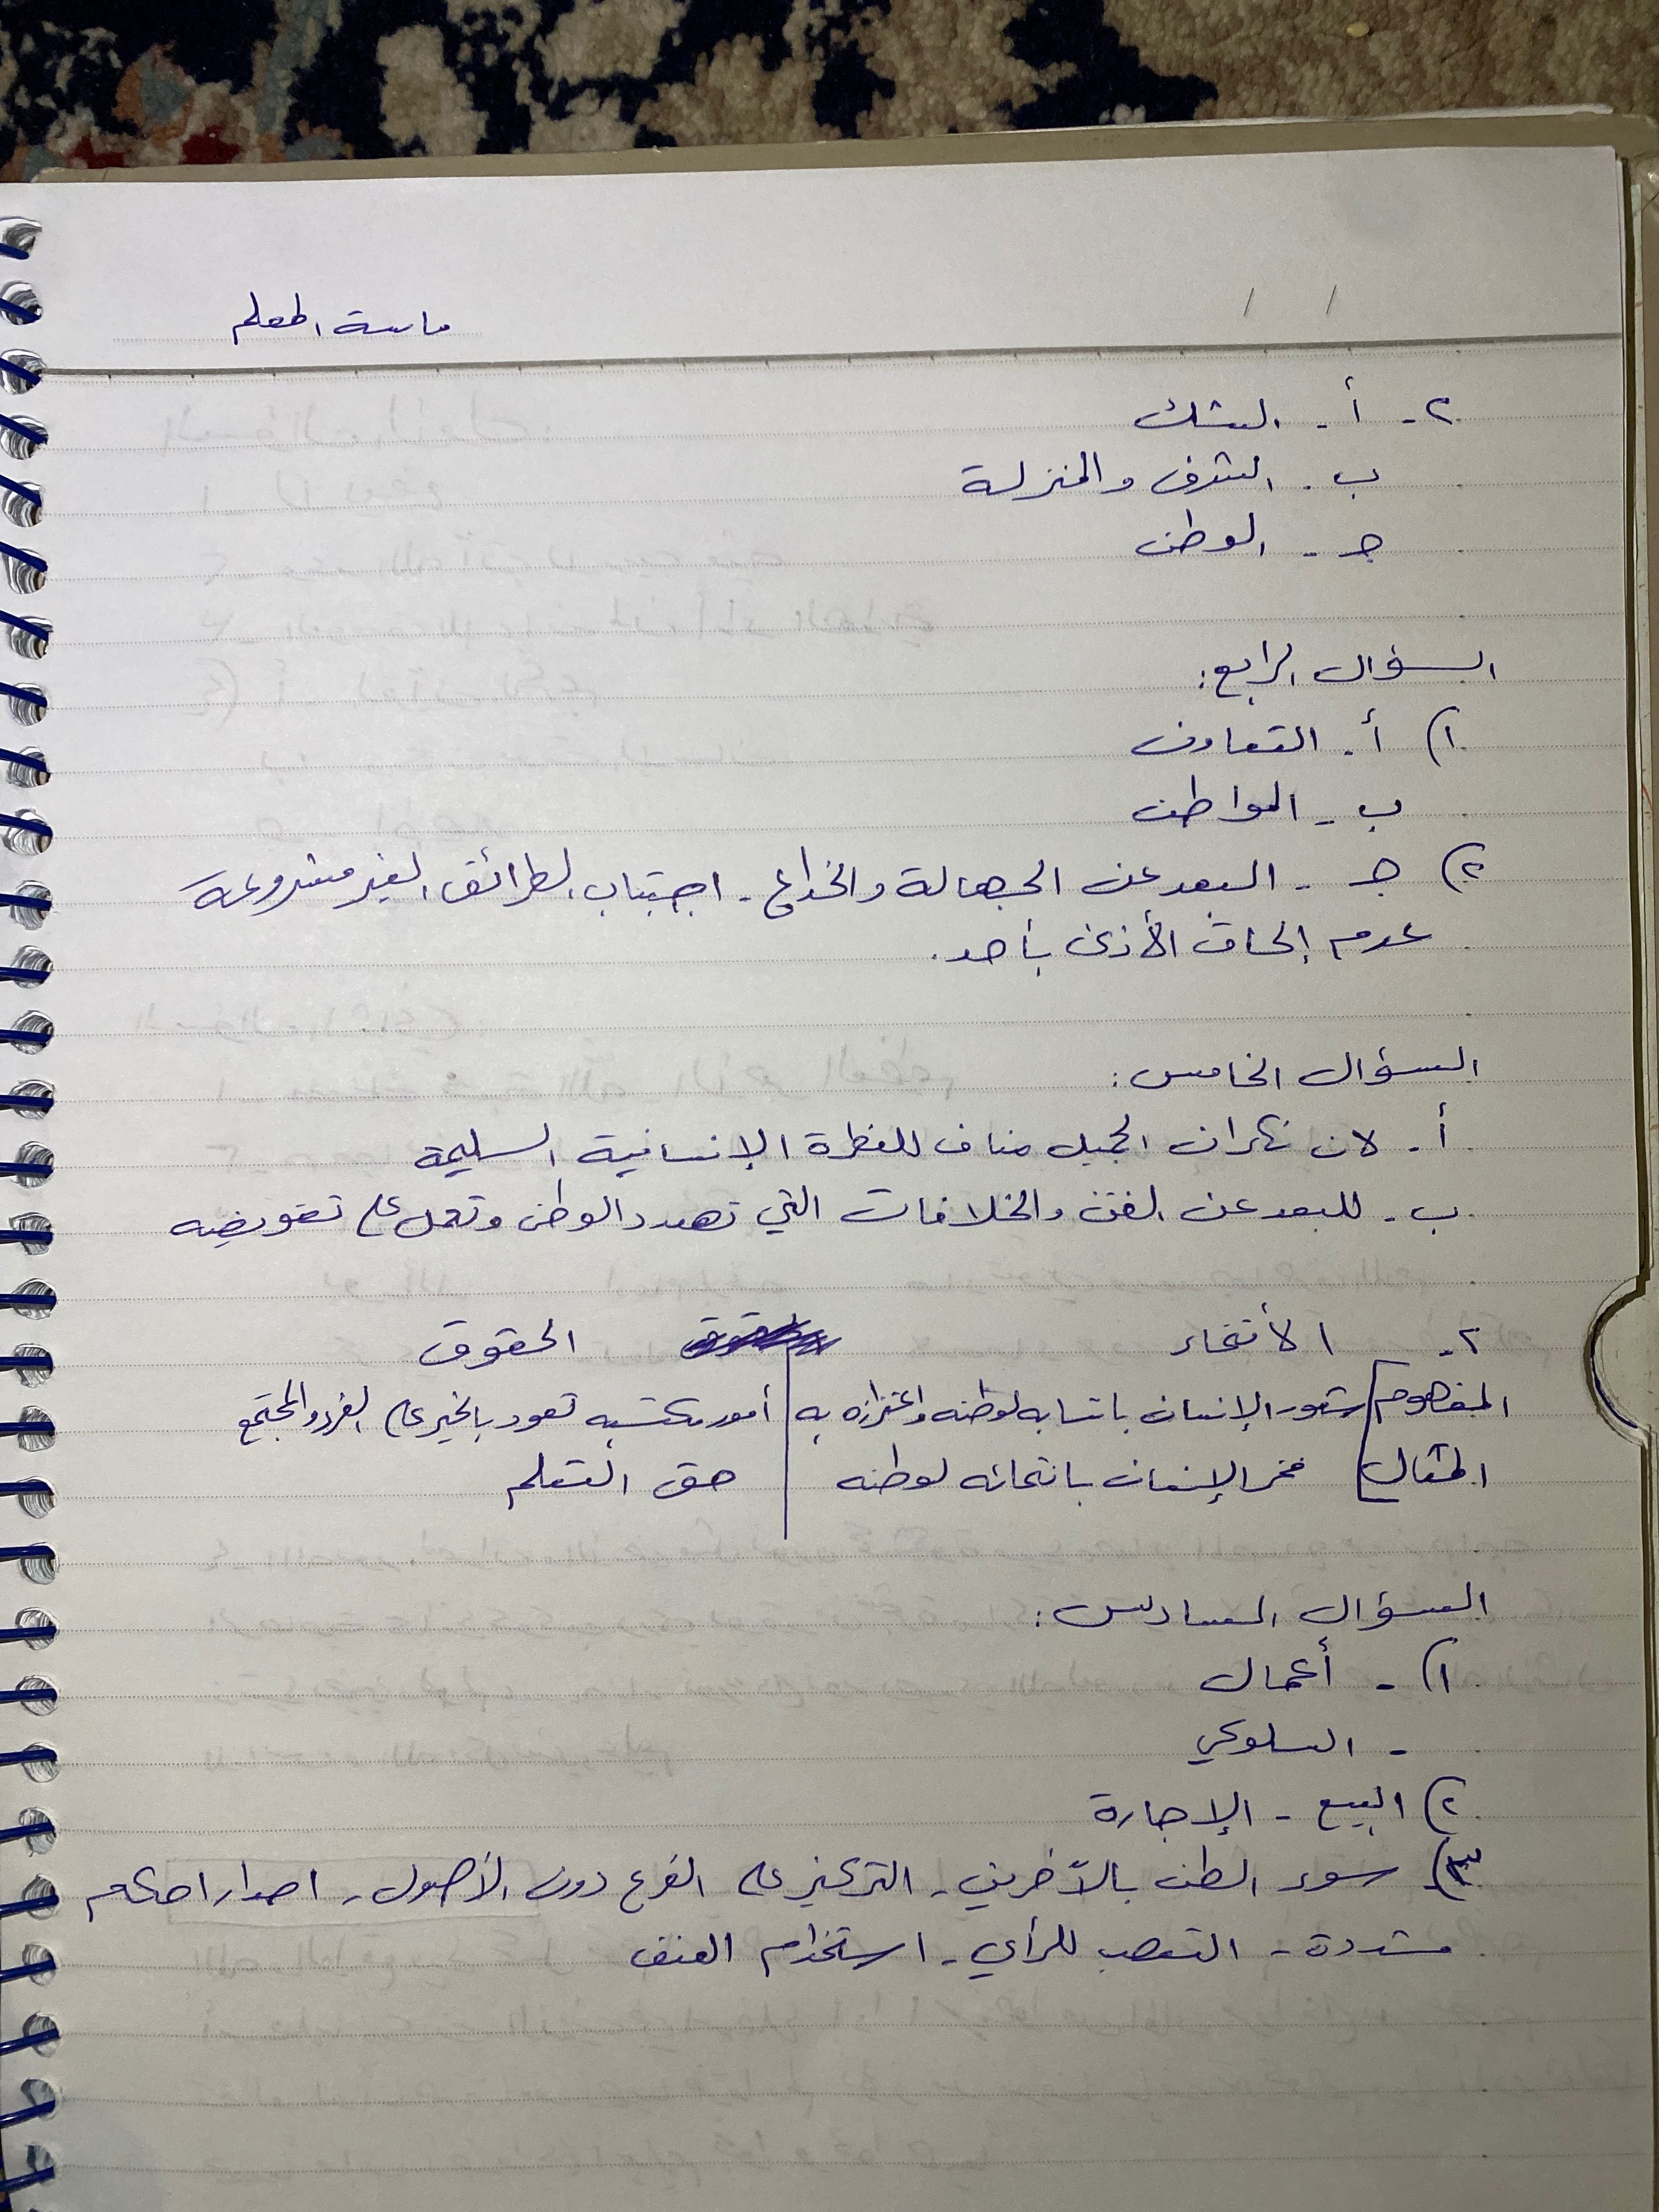 ماسة المعلم
٢- أ- الشك
ب- الشرف والمنزلة
ج- الوطن
السؤال الرابع:
١) أ- التعاون
ب- المواطن
٢) ج- البعد عن الجهالة والخداع - اجتناب الطرائق الغير مشروعة
عدم إلحاق الأذى بأحد.
السؤال الخامس:
أ- لان نكران الجميل مناف للفطرة الإنسانية السليمة
ب- للبعد عن الفتن والخلافات التي تهدد الوطن وتعمل على تقويضه
٢- الأنتماء الحقوق
المفهوم شعور الإنسان بانتسابه لوطنه واعتزازه به أمور مكتسبه تعود بالخير على الفرد والمجتمع
المثال فخر الإنسان بانتمائه لوطنه حق التعلم
السؤال السادس:
١) - أعمال
- السلوكي
٢) البيع - الإجارة
٣) سوء الظن بالآخرين - التركيز على الفرع دون الأصول - اصدار احكام
مشددة - التعصب للرأي - استخدام العنف